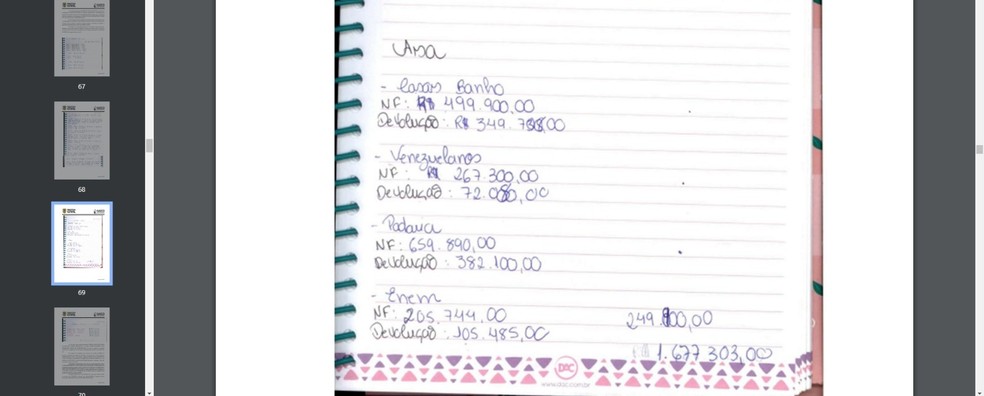 67
68
69
70
Ama
- Casas Banho
NF: R$ 499.900,00
Devolução: R$ 349.700,00
- Venezuelanos
NF: R$ 267.300,00
Devolução: 72.080,00
- Padaria
NF: 659.890,00
Devolução: 382.100,00
- Enem
NF: 205.744,00
Devolução: 105.485,00
249.800,00
1.677 303,00
DAC
www.dac.com.br